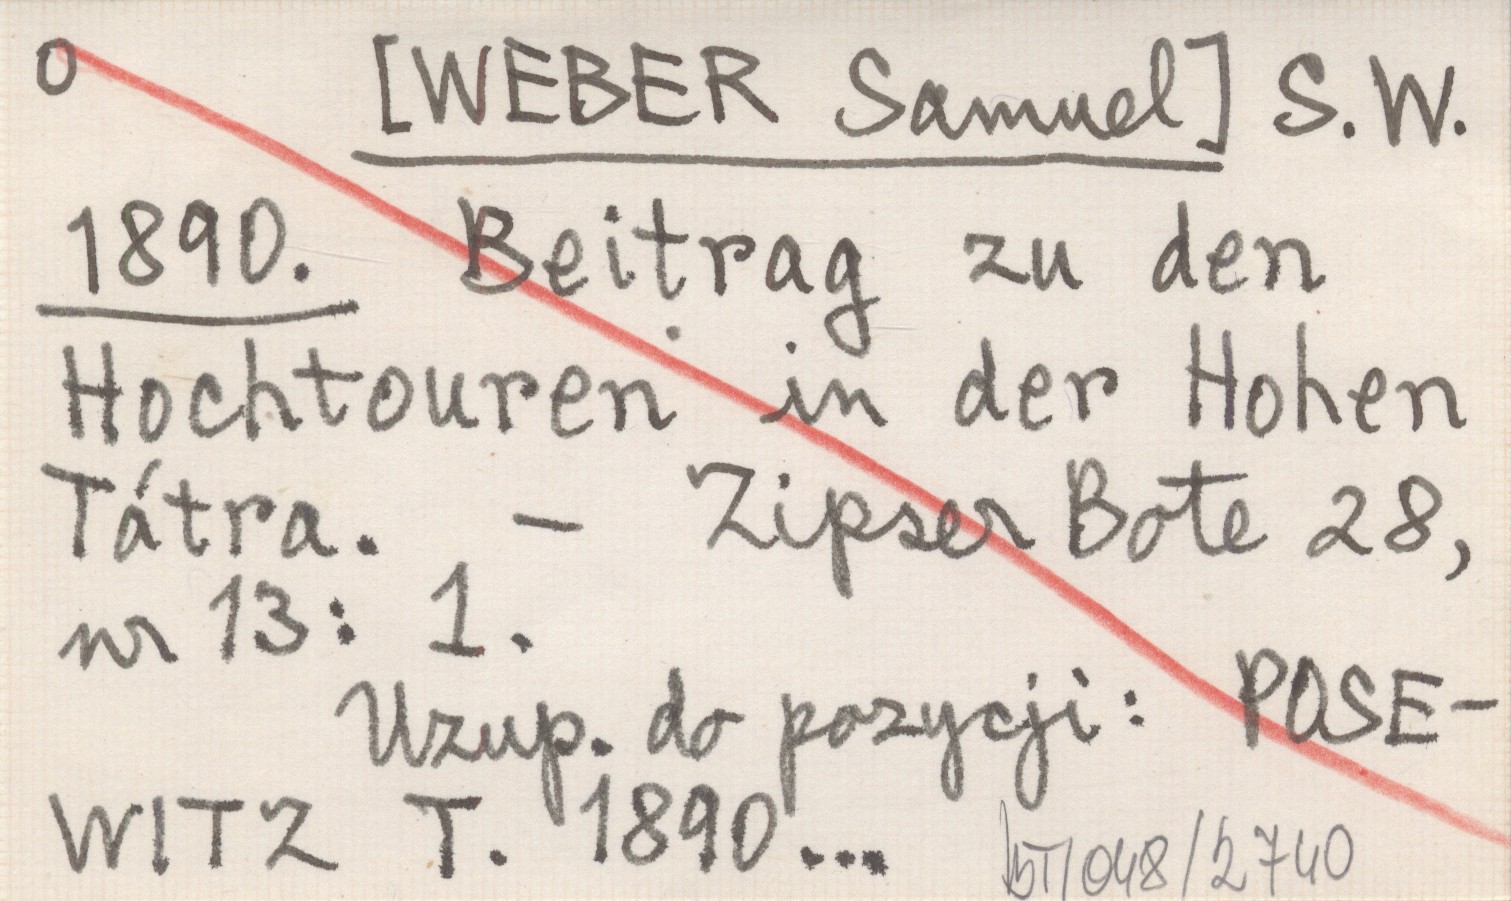 O [WEBER Samuel] S.W.
1890. Beitrag zu den
Hochtouren in der Hohen
Tátra. – Zipser Bote 28,
nr 13: 1.
Uzup. do pozycji: POSE-
WITZ T. 1890...
BT/048/2740